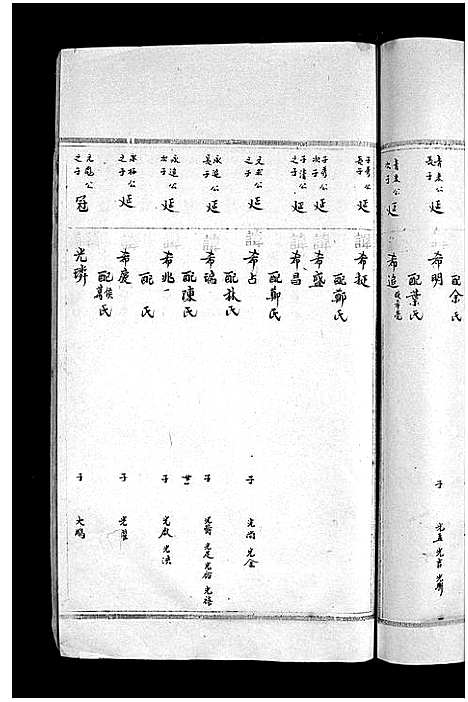 配余氏
青来公長子 廷 希明 子 光五 光吉 光彩
配葉氏
青来公次子 廷 希追
配鄭氏
子秀公長子 廷 諱 希挺
子秀公次子 廷 諱 希盛
子清公之子 廷 諱 希昌
配鄭氏
元玉公之子 廷 諱 希占 子 光尚 光全
配林氏
永追公長子 廷 諱 希瑞 子 光爵 光定 光裕 光禧
配陳氏
永追公次子 廷 希兆 子 光啟 光洪
配 氏
公之子 廷 希慶 子 光
配侯氏 萬氏
元冠公之子 冠 光璘 子 大鵬